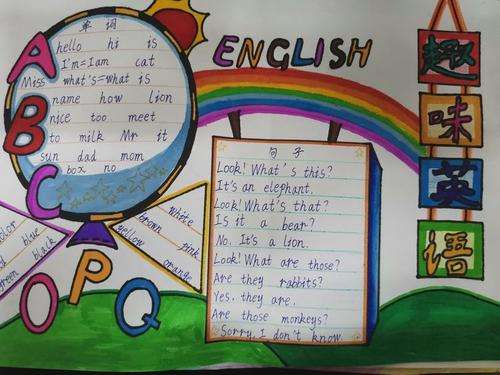 ENGLISH
趣味英语
ABC
单词
hello hi is
I'm=Iam cat
Miss what's=what is
name how lion
nice too meet
to milk Mr it
sun dad mom
box no
句子
Look! What's this?
It's an elephant.
Look! What's that?
Is it a bear?
No. It's a lion.
Look! What are those?
Are they rabbits?
Yes, they are.
Are those monkeys?
Sorry, I don't know
blue
green black
brown white
yellow pink
orange
OPQ